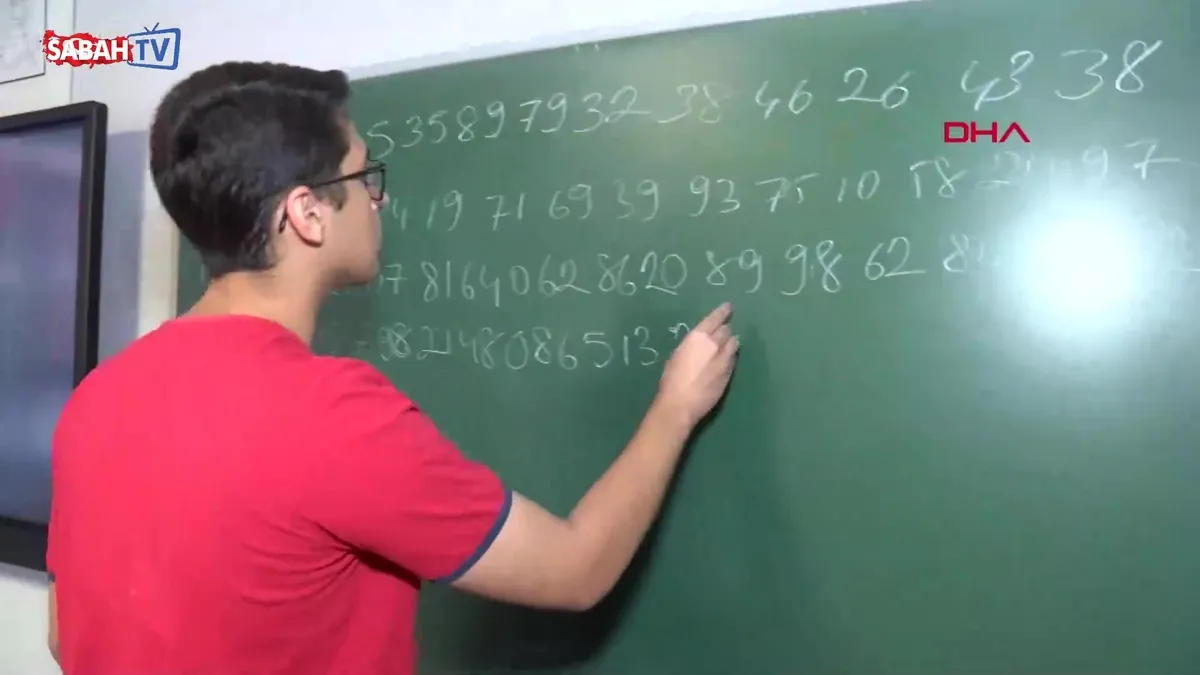 SABAH TV
535897932 38 46 26 43 38
DHA
4 19 71 69 39 93 75 10 58 97
7 8164062 8620 89 98 62 8
98214808651 3